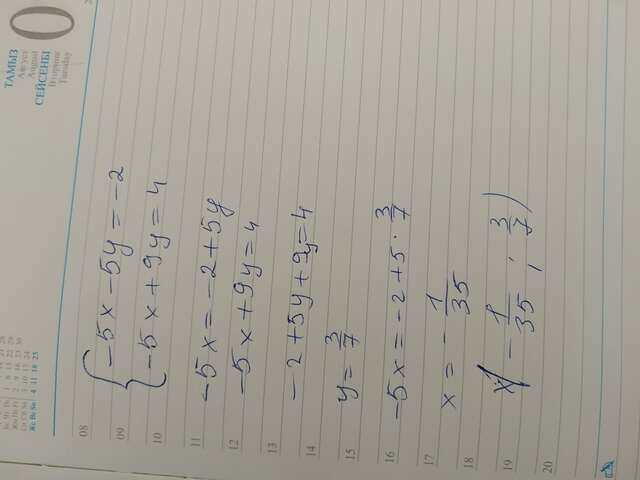 ТАМЫЗ
Август
August
СЕЙСЕНБІ
Вторник
Tuesday
0
08
09
10
11
12
13
14
15
16
17
18
19
20
{ -5x - 5y = -2
-5x + 9y = 4
-5x = -2 + 5y
-5x + 9y = 4
-2 + 5y + 9y = 4
y = 3/7
-5x = -2 + 5 · 3/7
x = - 1/35
(- 1/35 ; 3/7)